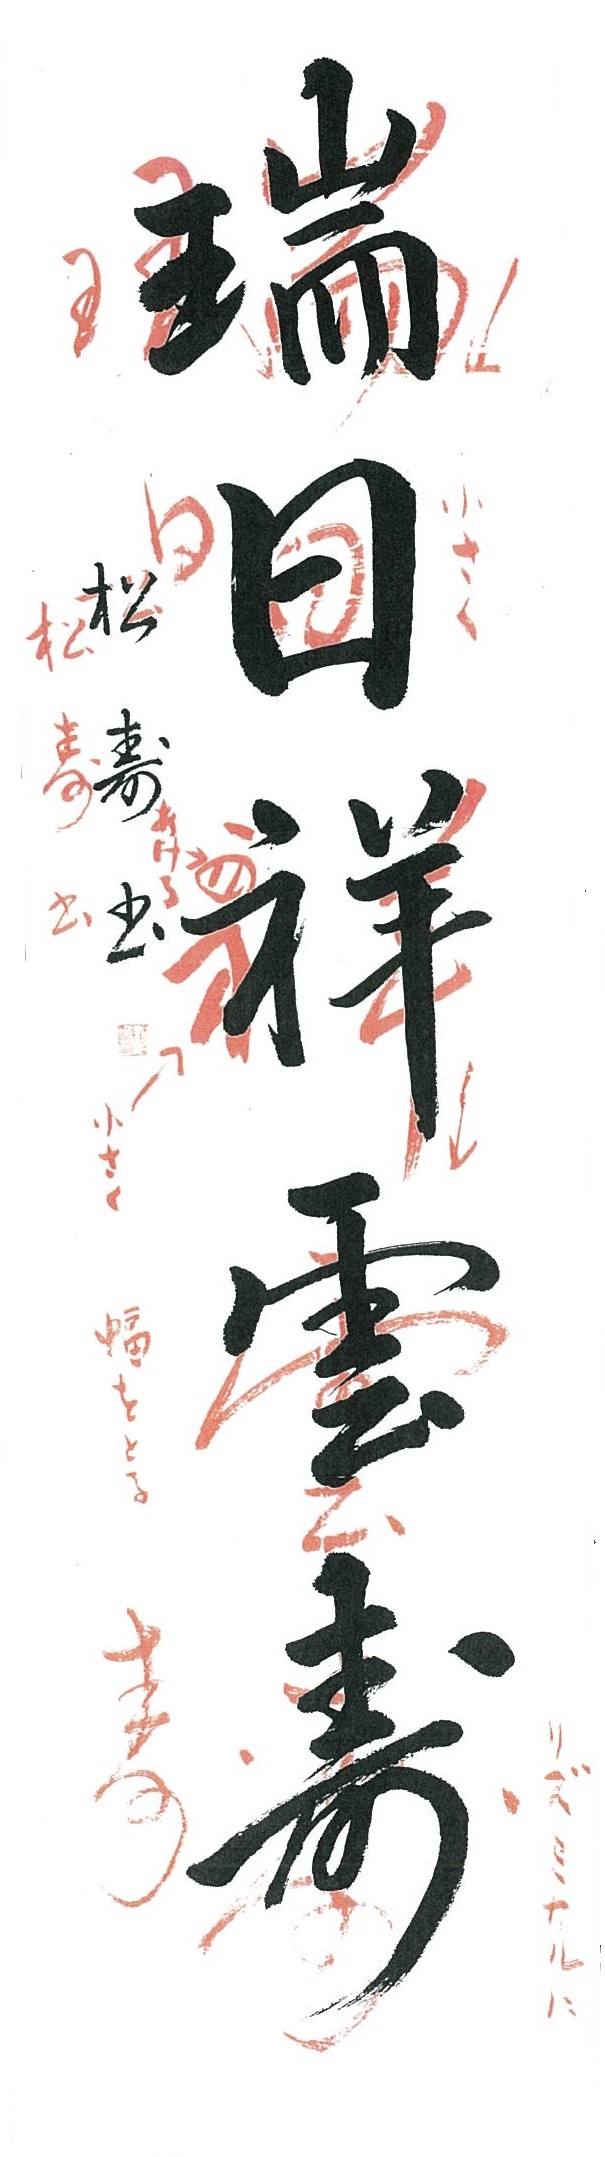 瑞日祥雲寿
小さく
リズミカルに
王
日
松寿書
あける
松寿書
小さく
幅をとる
寿